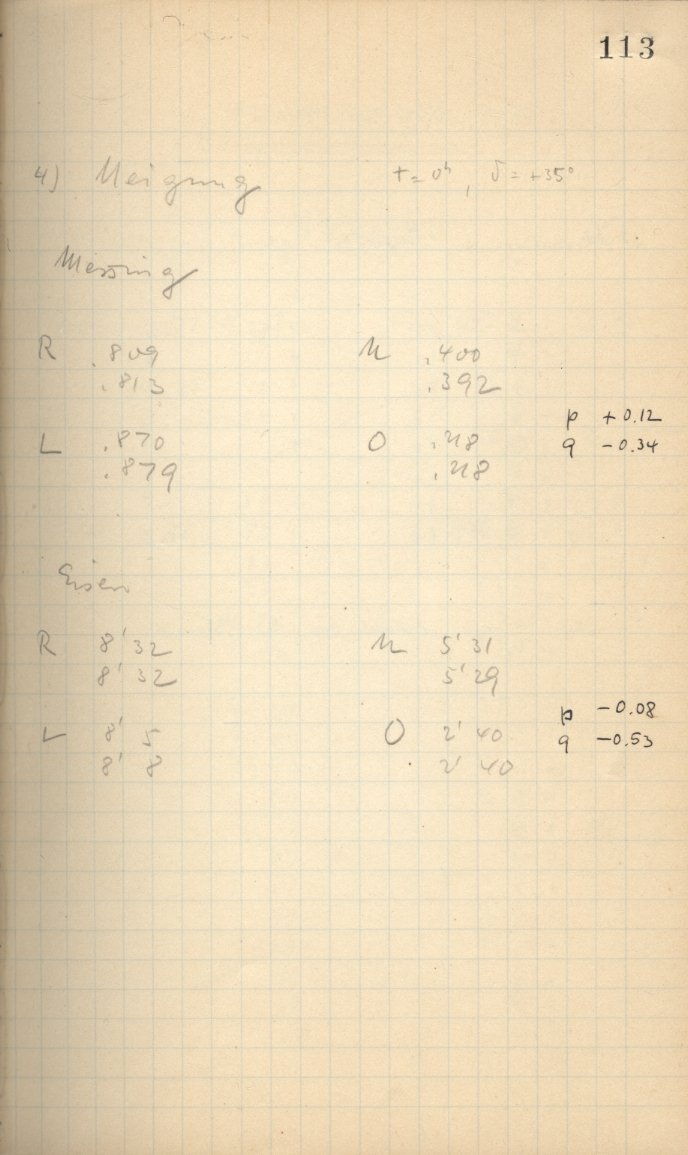 113
4) Neigung t = 0ʰ, δ = +35°
Messing
R .809 U .400
.813 .392
p +0.12
L .870 O .218
q -0.34
.879 .218
Eisen
R 8' 32 U 5' 31
8' 32 5' 29
p -0.08
L 8' 5 O 2' 40
q -0.53
8' 8 2' 40